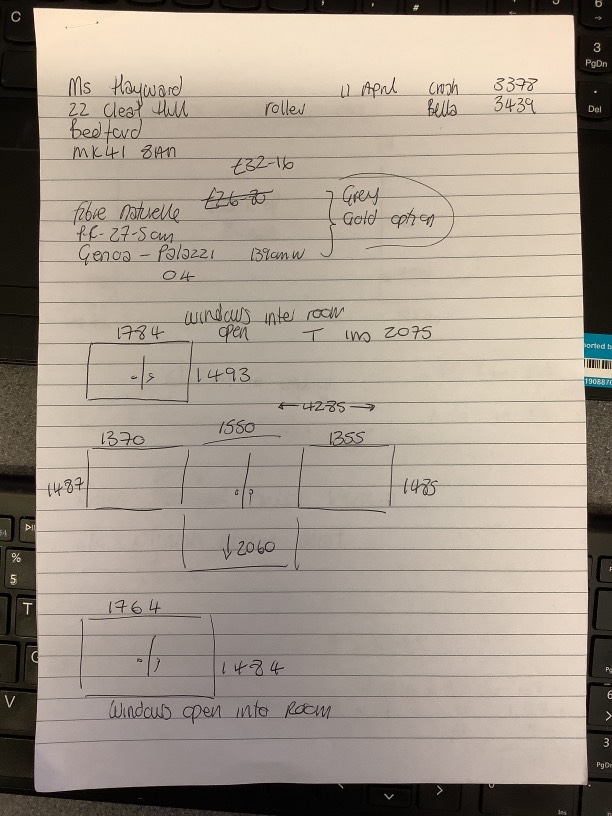 Ms Hayward 11 April Crash 3378
22 Cleat Hill roller Bella 3439
Bedford
MK41 8AN
£32-16
£26-80
Fibre Naturelle } Grey
PR-27-5cm Gold option
Genoa - Palazzi 139cm W
04
Windows into room
1784 open T ins 2075
1493
← 4285 →
1370 1550 1355
1487 1485
↓2060
1764
1484
Windows open into Room
3
PgDn
Del
%
5
T
V